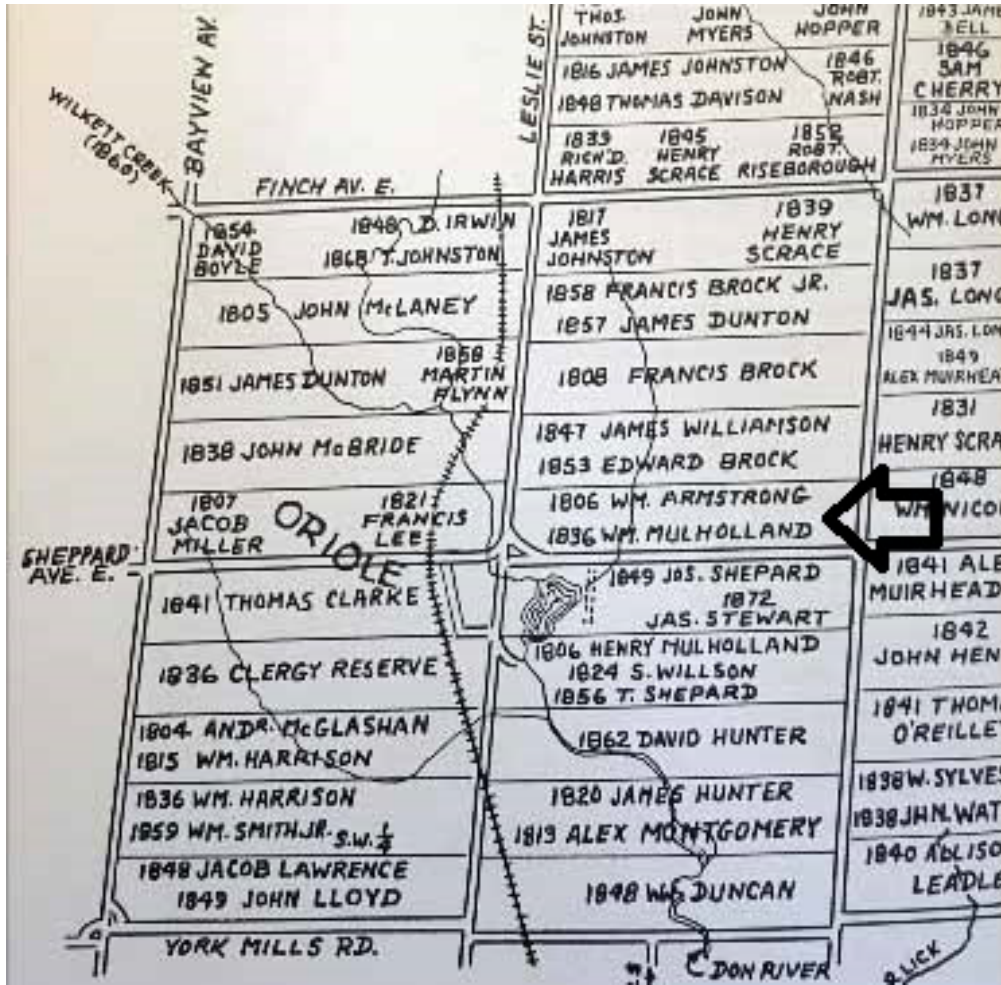 BAYVIEW AV.
LESLIE ST.
WILKETT CREEK
(1860)
THOS.
JOHNSTON
JOHN
MYERS
JOHN
HOPPER
1816 JAMES JOHNSTON
1848 THOMAS DAVISON
1846
ROBT.
NASH
1839
RICH'D.
HARRIS
1845
HENRY
SCRACE
1852
ROBT.
RISEBOROUGH
BELL
1846
SAM
CHERRY
1834 JOHN
HOPPER
1834 JOHN
MYERS
FINCH AV. E.
1854
DAVID
BOYLE
1848 D. IRWIN
1868 T. JOHNSTON
1805 JOHN McLANEY
1851 JAMES DUNTON
1858
MARTIN
FLYNN
1838 JOHN McBRIDE
1807
JACOB
MILLER
1821
FRANCIS
LEE
ORIOLE
1817
JAMES
JOHNSTON
1839
HENRY
SCRACE
1858 FRANCIS BROCK JR.
1857 JAMES DUNTON
1808 FRANCIS BROCK
1847 JAMES WILLIAMSON
1853 EDWARD BROCK
1806 WM. ARMSTRONG
1836 WM. MULHOLLAND
1837
WM. LONG
1837
JAS. LONG
1844 JAS. LON
1849
ALEX MUIRHEA
1831
HENRY SCRA
1848
WM NICO
SHEPPARD
AVE. E.
1841 THOMAS CLARKE
1836 CLERGY RESERVE
1804 ANDR. McGLASHAN
1815 WM. HARRISON
1836 WM. HARRISON
1859 WM. SMITH JR. S.W. 1/4
1848 JACOB LAWRENCE
1849 JOHN LLOYD
1849 JOS. SHEPARD
1872
JAS. STEWART
1806 HENRY MULHOLLAND
1824 S. WILLSON
1856 T. SHEPARD
1862 DAVID HUNTER
1820 JAMES HUNTER
1813 ALEX MONTGOMERY
1848 WM DUNCAN
1841 ALE
MUIRHEAD
1842
JOHN HEN
1841 THOM
O'REILLE
1838 W. SYLVES
1838 JHN. WAT
1840 ADLISO
LEADLE
YORK MILLS RD.
DON RIVER
LICK